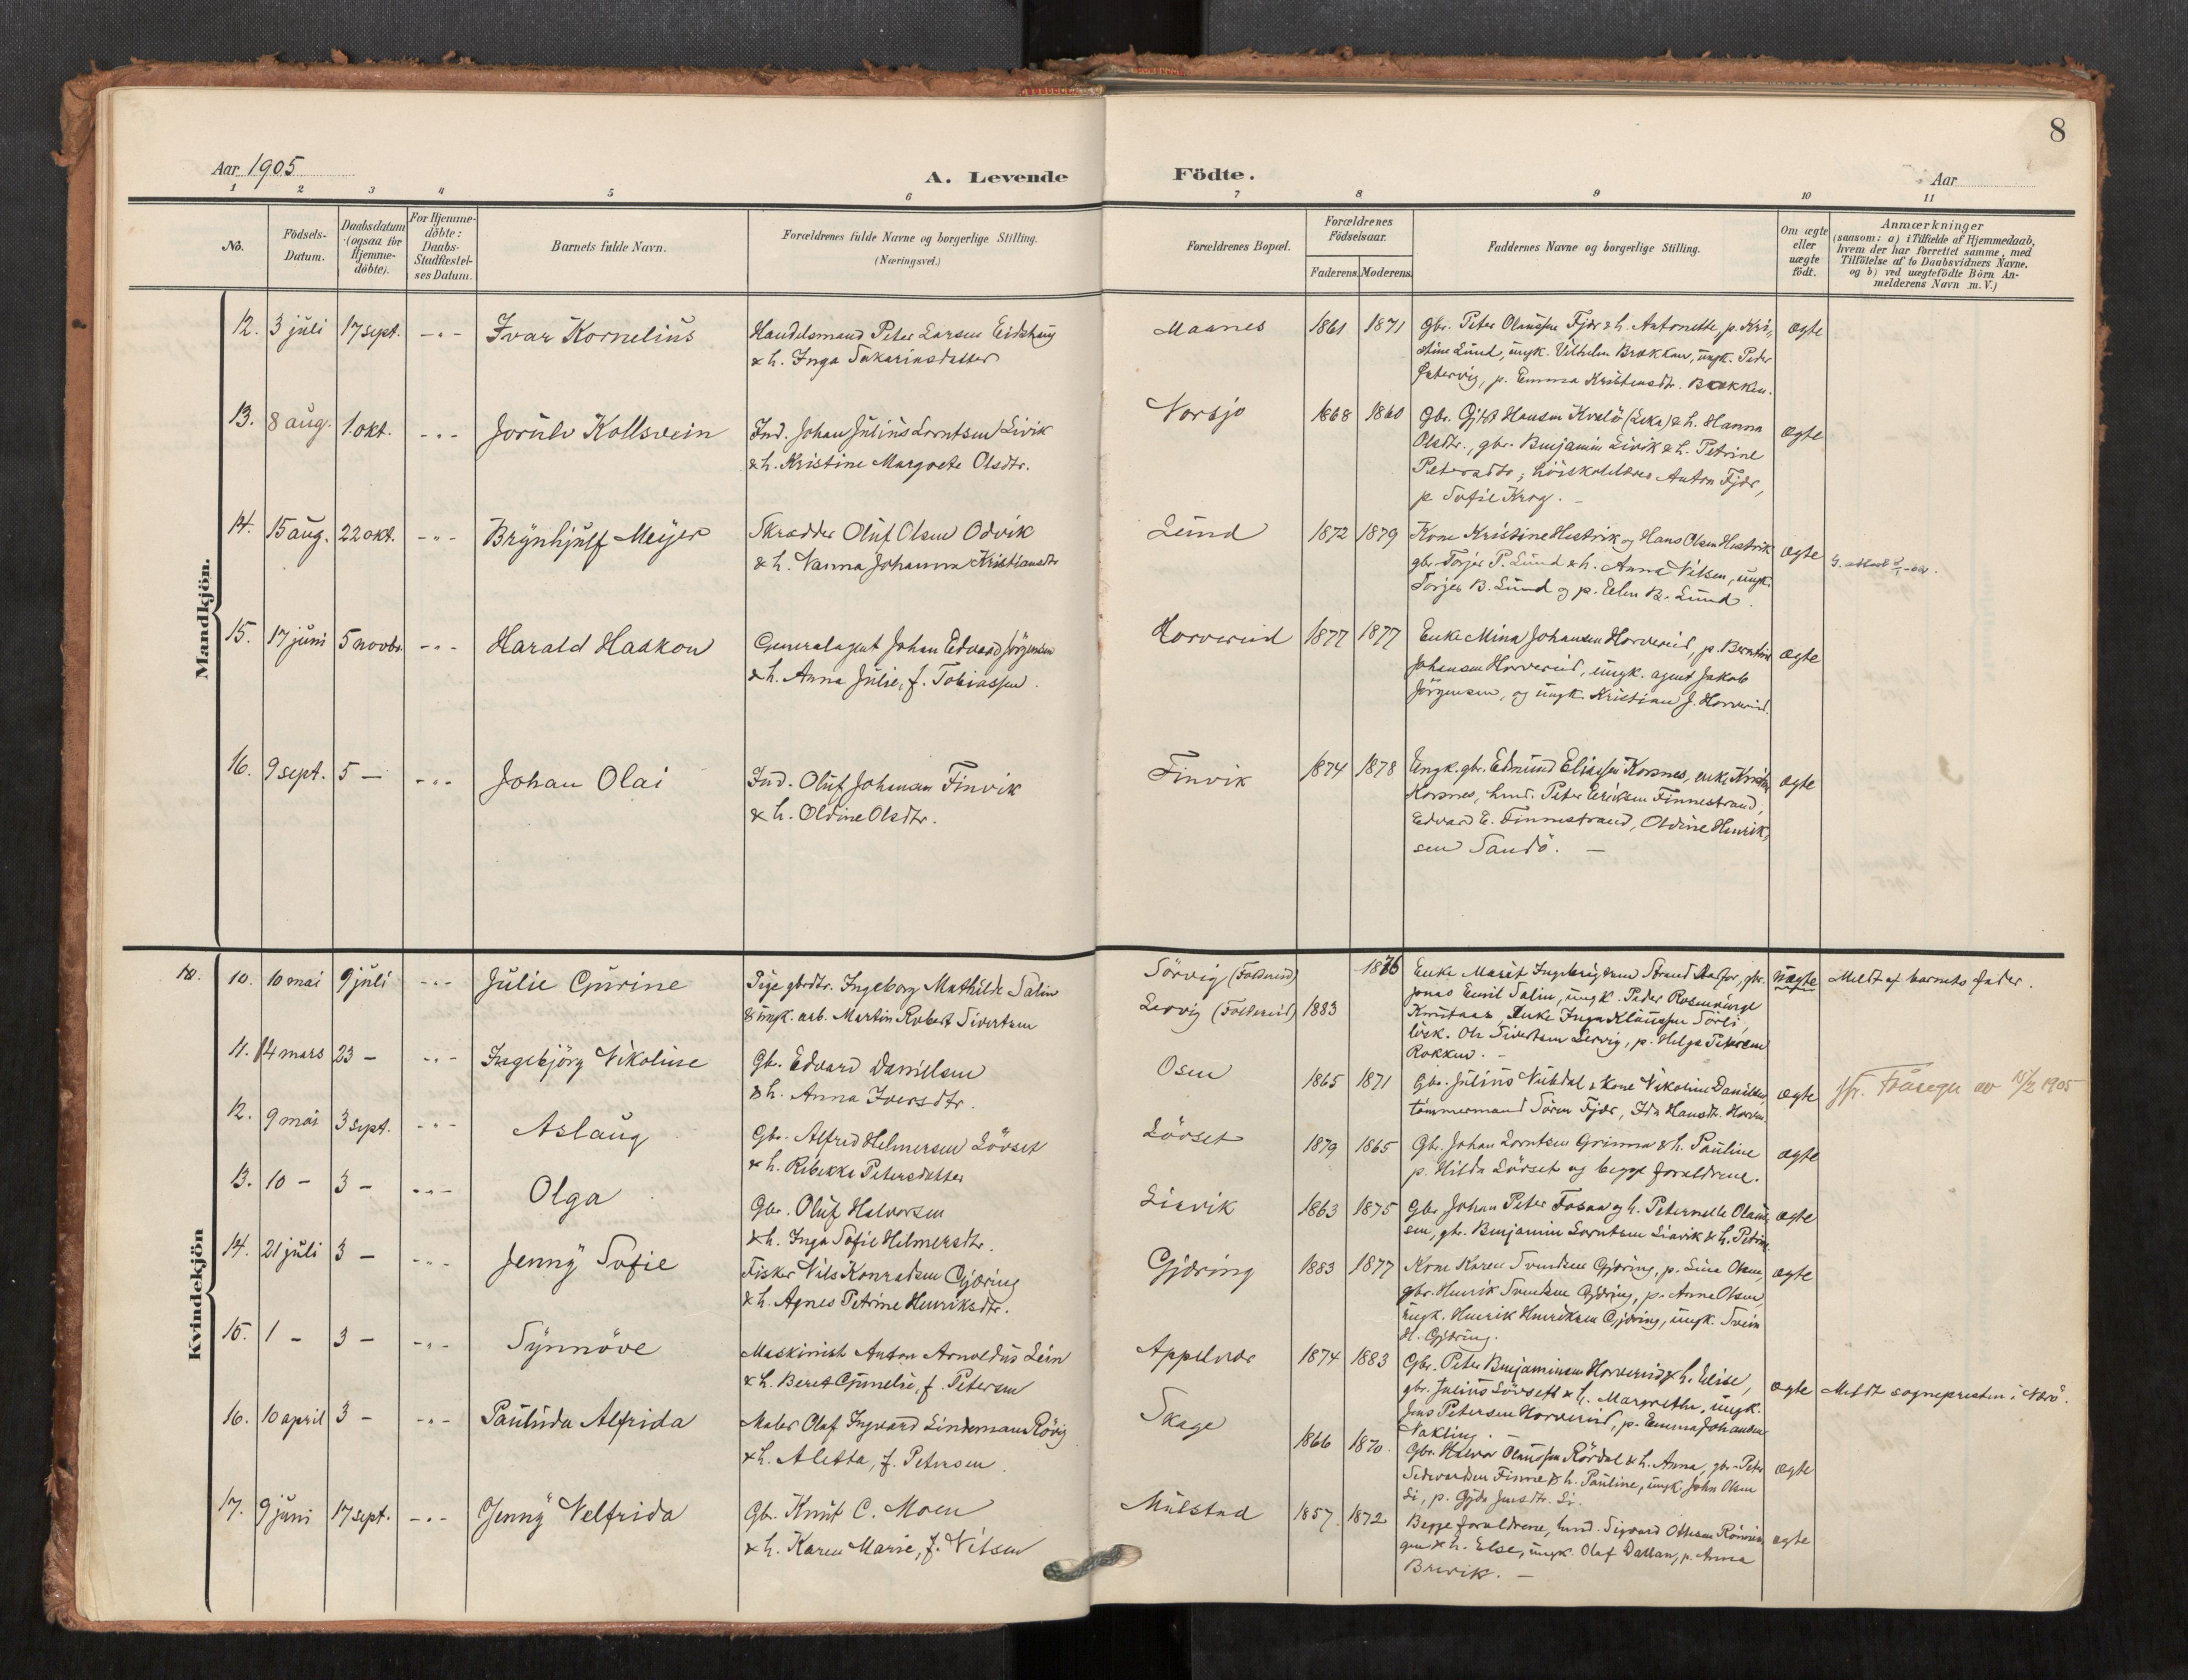 8
Aar 1905
A. Levende Födte.
Aar
1 2 3 4 5 6 7 8 9 10 11
No.
Födsels-
Datum.
Daabsdatum
(ogsaa for
Hjemme-
döbte).
For Hjemme-
döbte:
Daabs-
Stadfæstel-
ses Datum.
Barnets fulde Navn.
Forældrenes fulde Navne og borgerlige Stilling.
(Næringsvei.)
Forældrenes Bopæl.
Forældrenes
Födselsaar.
Faderens. Moderens.
Faddernes Navne og borgerlige Stilling.
Om ægte
eller
uægte
födt.
Anmærkninger
(saasom: a) i Tilfælde af Hjemmedaab,
hvem der har forrettet samme, med
Tilföielse af to Daabsvidners Navne,
og b) ved uægtefödte Börn An-
melderens Navn m. V.)
Mandkjön.
12. 3 juli 17 sept. -"- Ivar Kornelius
Handelsmand Peter Larsen Eidshaug
& h. Inga Sakariasdatter
Maanes 1861 1871
Gbr. Peter Olaussen Fjær & h. Antonette, p. Kri-
stine Lund, ungk. Vilhelm Brækken, ungk. Peder
p. Emma Kristensdtr. Brækken.
ægte
13. 8 aug. 1. okt. -"- Jorulv Kollsvein
Ind. Johan Julius Lorntsen Livik
& h. Kristine Margrete Olsdtr.
Norsjø 1868 1860
Gbr. Hansen Kvalö (Leka) & h. Hanna
Olsdtr., gbr. Benjamin Livik & h. Petrine
Petersdtr, höiskolelærer Anton Fjær,
p. Sofie Krog. -
ægte
14. 15 aug. 22 okt. -"- Brynhjulf Meyer
Skrædder Oluf Olsen Odvik
& h. Nanna Johanna Kristiansdtr
Lund 1872 1879
Kone Kristine Hestvik og Hans Olsen Hestvik
gbr. Torjer P. Lund & h. Anna Nilsen, ungk.
Torjer B. Lund og p. Elen B. Lund.
ægte
15. 17 juni 5 novbr -"- Harald Haakon
Generalagent Johan Edvard Jörgensen
& h. Anna Julie, f. Tobiassen.
Horvereid 1877 1877
Enke Mina Johansen Horvereid, p. Berntine
Johansen Horvereid, ungk. agent Jakob
Jörgensen, og ungk. Kristian J. Horvereid.
ægte
16. 9 sept. 5 - -"- Johan Olai
Ind. Oluf Johansen Finvik
& h. Oldine Olsdtr.
Finvik 1874 1878
Ungk. gbr. Edmund Eliassen Korsnes, enke
Korsnes, Peter Eriksen Finnestrand,
Edvard E. Finnestrand, Oldine Henrik-
sen Sandö. -
ægte
Kvindekjön
10. 10. 10 mai 9 juli -"- Julie Gurine
Pige gbrdtr. Ingeborg Mathilde Salin
& ungk. arb. Martin Robert Sivertsen
Sörvig (Foldereid) 1876
Lervig (Foldereid) 1883
Enke Marit Ingebrigtsen Strand gbr.
Jonas Emil Salin, ungk. Peder
Enke Inga Klaussen Sörli,
Ole Sivertsen Lervig, p. Helga Petersen
Rokken. -
uægte
Meldt af barnets fader.
11. 14 mars 23 - -"- Ingebjörg Nikoline
Gbr. Edvard Danielsen
& h. Anna Iversdtr.
Osen 1865 1871
Gbr. Julius Nubdal & kone Nikoline Danielsen,
tömmermand Sören Fjær, Ida Hansdtr.
ægte
15/2 1905
12. 9 mai 3 sept. -"- Aslaug
Gbr. Alfred Helmersen Lövset
& h. Rebekka Petersdatter
Lövset 1879 1865
Gbr. Johan Lorntsen Grinna & h. Pauline
p. Hilda Lövset og begge forældrene.
ægte
13. 10 - 3 - -"- Olga
Gbr. Oluf Halvorsen
& h. Inga Sofie Helmersdtr.
Liavik 1863 1875
Gbr. Johan Peter Fosaa og h. Peternelle Olaus-
sen, gbr. Benjamin Lorntsen Liavik & h. Petrine
ægte
14. 21 juli 3 - -"- Jenny Sofie
Fisker Nils Konradsen Gjæring
& h. Agnes Petrine Henriksdtr.
Gjæring 1883 1877
Kone Karen Svendsen Gjæring, p. Lina Olsen,
gbr. Henrik Svendsen Gjæring, p. Anne Olsen,
ungk. Henrik Henriksen Gjæring, ungk. Svein
H. Gjæring.
ægte
15. 1 - 3 - -"- Synnöve
Maskinist Anton Arnoldus Lein
& h. Beret Gunelie, f. Petersen
Appelvær 1874 1883
Gbr. Peter Benjaminsen Horvereid & h. Elise,
gbr. Julius Lövseth & h. Margrethe, ungk.
Jens Petersen Horvereid, p. Emma Johansen
Nakling. -
ægte
Meldt sognepresten i Nærö.
16. 10 april 3 - -"- Paulinda Alfrida
Maler Olaf Ingvard Lindeman Rövig
& h. Aletta, f. Petersen.
Skage 1866 1870.
Gbr. Halvor Olaussen Rördal & h. Anna, gbr. Peter
Finne & h. Pauline, ungk. John Olsen
Li, p. Gjda Jensdtr. Li.
ægte
17. 9 juni 17 sept. -"- Jenny Velfrida
Gbr. Knut C. Moen
& h. Karen Marie, f. Nilsen
Mulstad 1857. 1872
Begge forældrene, Sigvard Ottesen
& h. Else, ungk. Olaf Dallan, p. Anna
Brevik. -
ægte